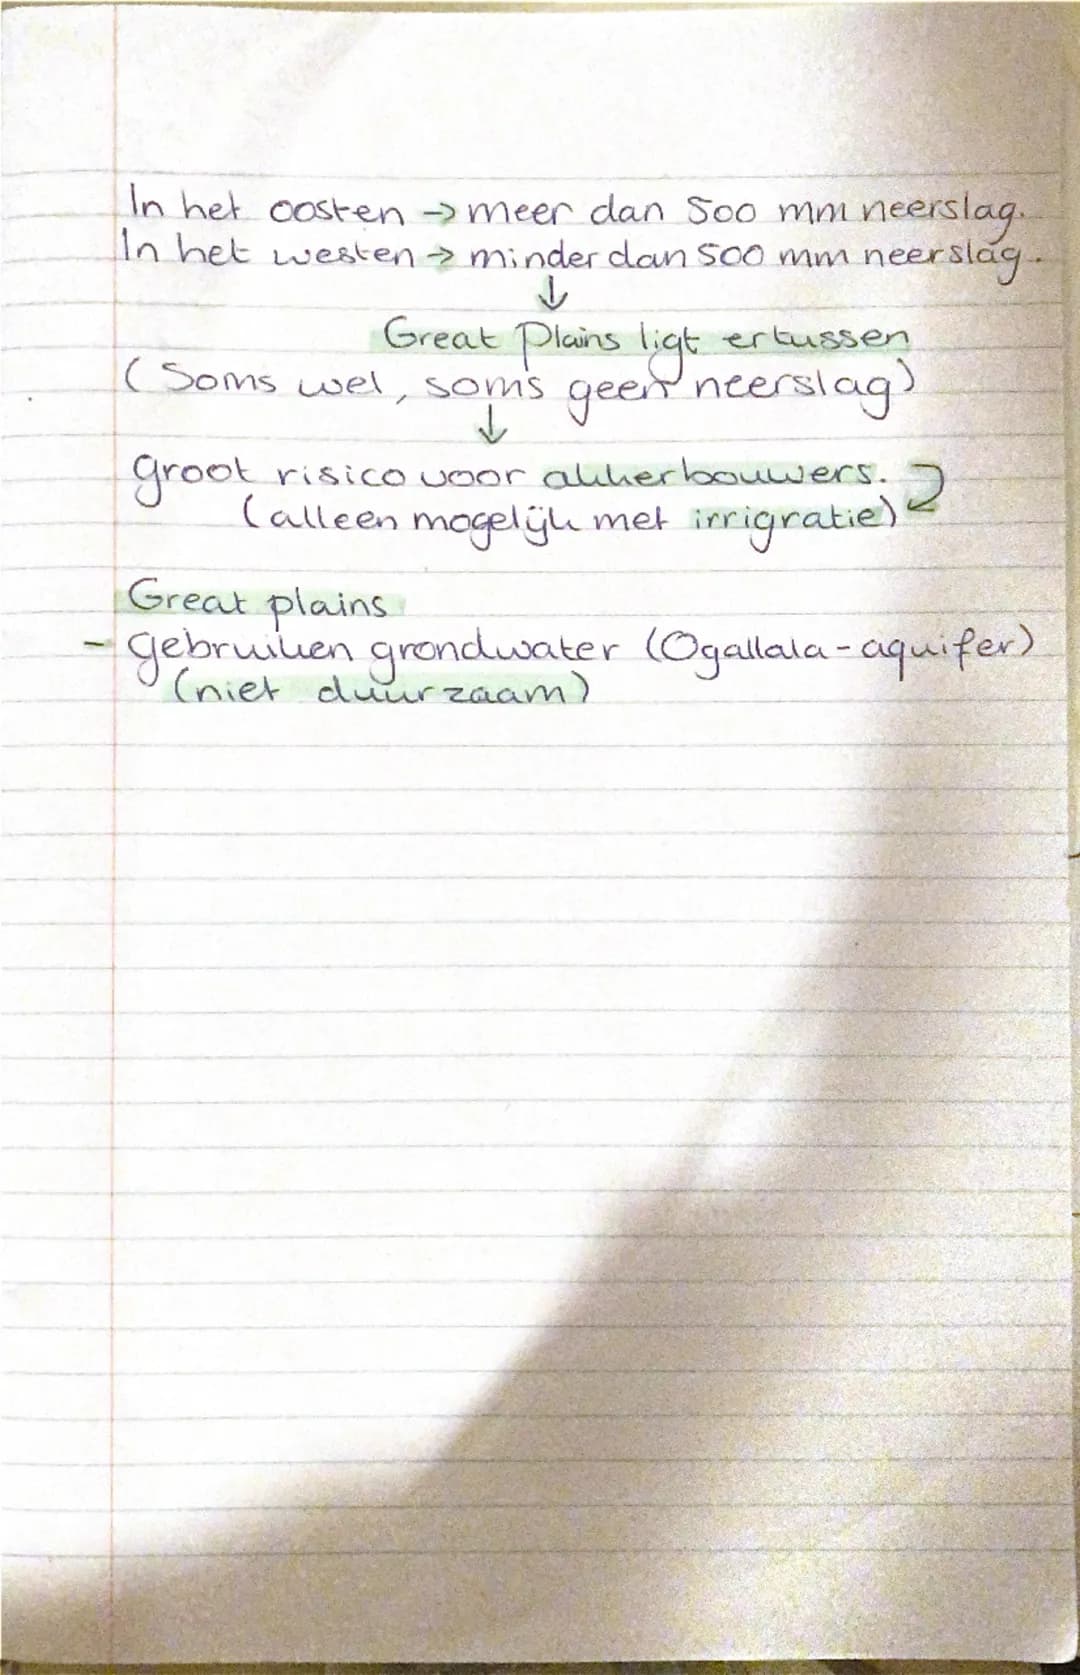 In het oosten → meer dan 500 mm neerslag.
In het westen → minder dan 500 mm neerslag.
↓
Great Plains ligt ertussen
(Soms wel, soms geen neerslag)
↓
groot risico voor akkerbouwers.
(alleen mogelijk met irrigratie)
Great plains
- gebruiken grondwater (Ogallala-aquifer)
(niet duurzaam)